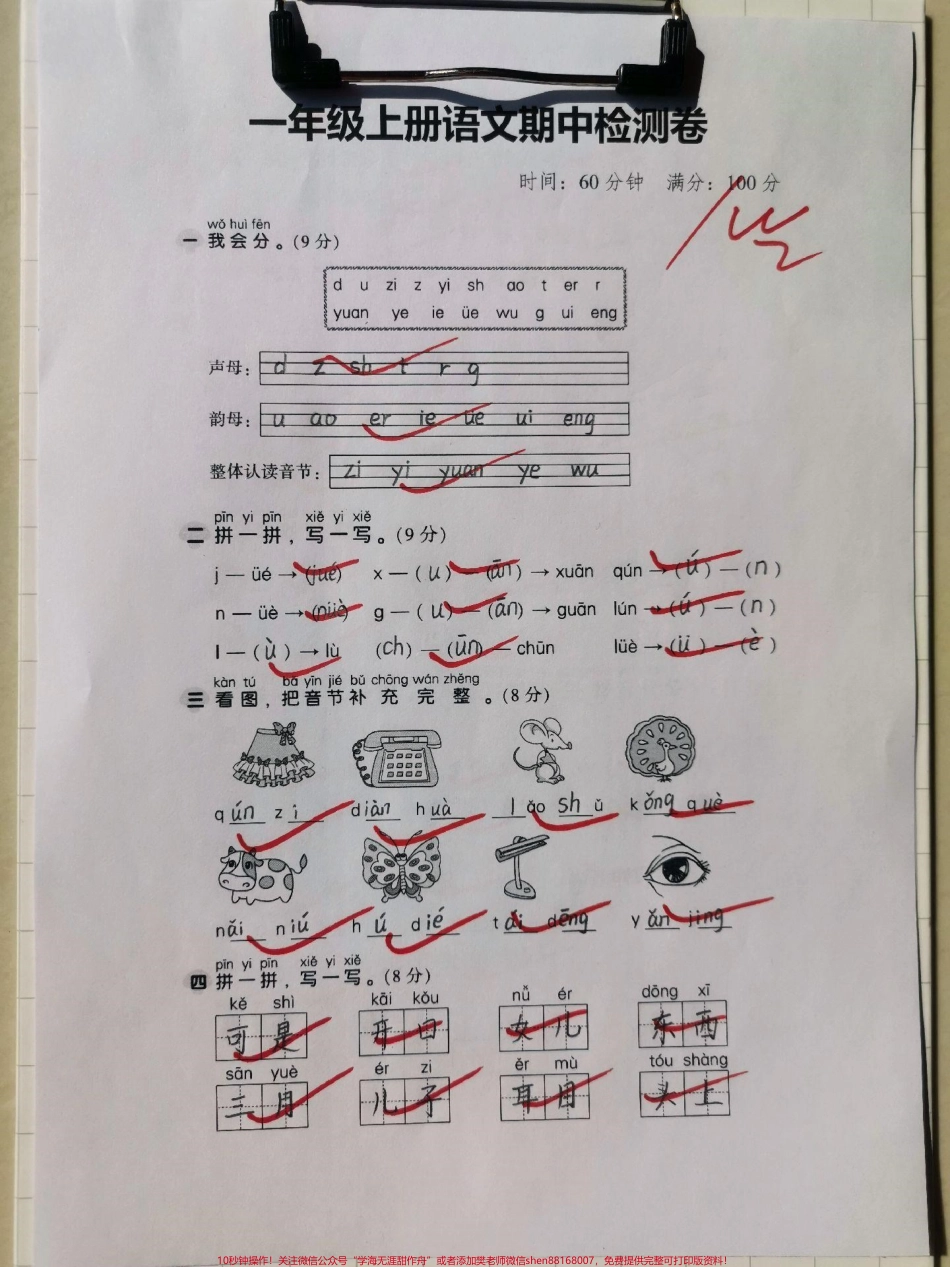 一年级上册语文期中检测卷
时间：60分钟 满分：100分
wǒ huì fēn
一 我会分。(9分)
d u zi z yi sh ao t er r
yuan ye ie üe wu g ui eng
声母： d z sh t r g
韵母： u ao er ie üe ui eng
整体认读音节： zi yi yuan ye wu
pīn yi pīn xiě yi xiě
二 拼一拼，写一写。(9分)
j — üé → (jué) x — (u) — (ān) → xuān qún → (ú) — (n)
n — üè → (nüè) g — (u) — (ān) → guān lún → (ú) — (n)
l — (ù) → lù (ch) — (ūn) — chūn lüè → (ü) — (è)
kàn tú bǎ yīn jié bǔ chōng wán zhěng
三 看图，把音节补充完整。(8分)
qún zi diàn huà lǎo shǔ kǒng què
nǎi niú hú dié tái dēng yǎn jing
pīn yi pīn xiě yi xiě
四 拼一拼，写一写。(8分)
kě shì kāi kǒu nǚ ér dōng xī
可是 开口 女儿 东西
sān yuè ér zi ěr mù tóu shàng
三月 儿子 耳目 头上
10秒钟操作！关注微信公众号“学海无涯甜作舟”或者添加樊老师微信shen88168007，免费提供完整可打印版资料！